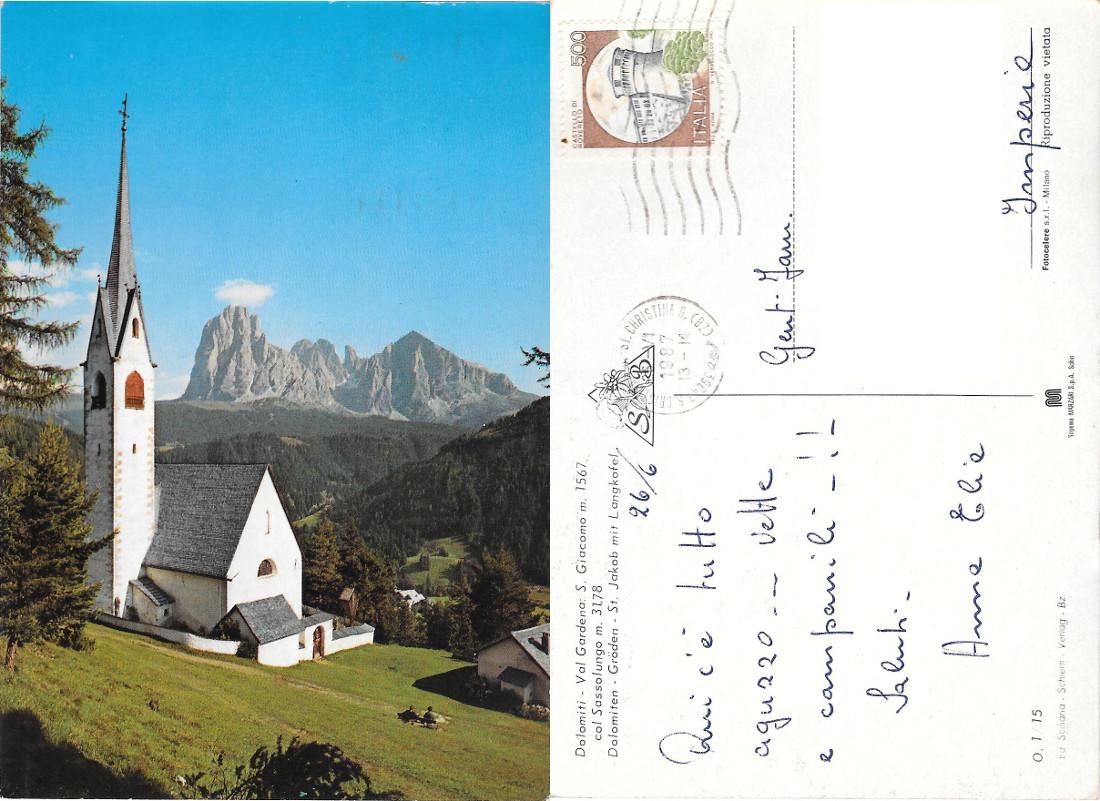 Dolomiti - Val Gardena: S. Giacomo m. 1567
col Sassolungo m. 3178
Dolomiten - Gröden - St. Jakob mit Langkofel
26/6
Qui c'è tutto
aguzzo -- vette
e campanili - !!
Saluti -
Anna Elia
O. 1 15
Schiern - Verlag - Bz
500
CASTELLO DI
ROVERETO
ITALIA
ST. CHRISTINA G. (BZ)
1987
13-14
Gent. Fam.
Imperia
Fotocelere s.r.l. - Milano Riproduzione vietata
Sogema MARZARI S.p.A. Schio